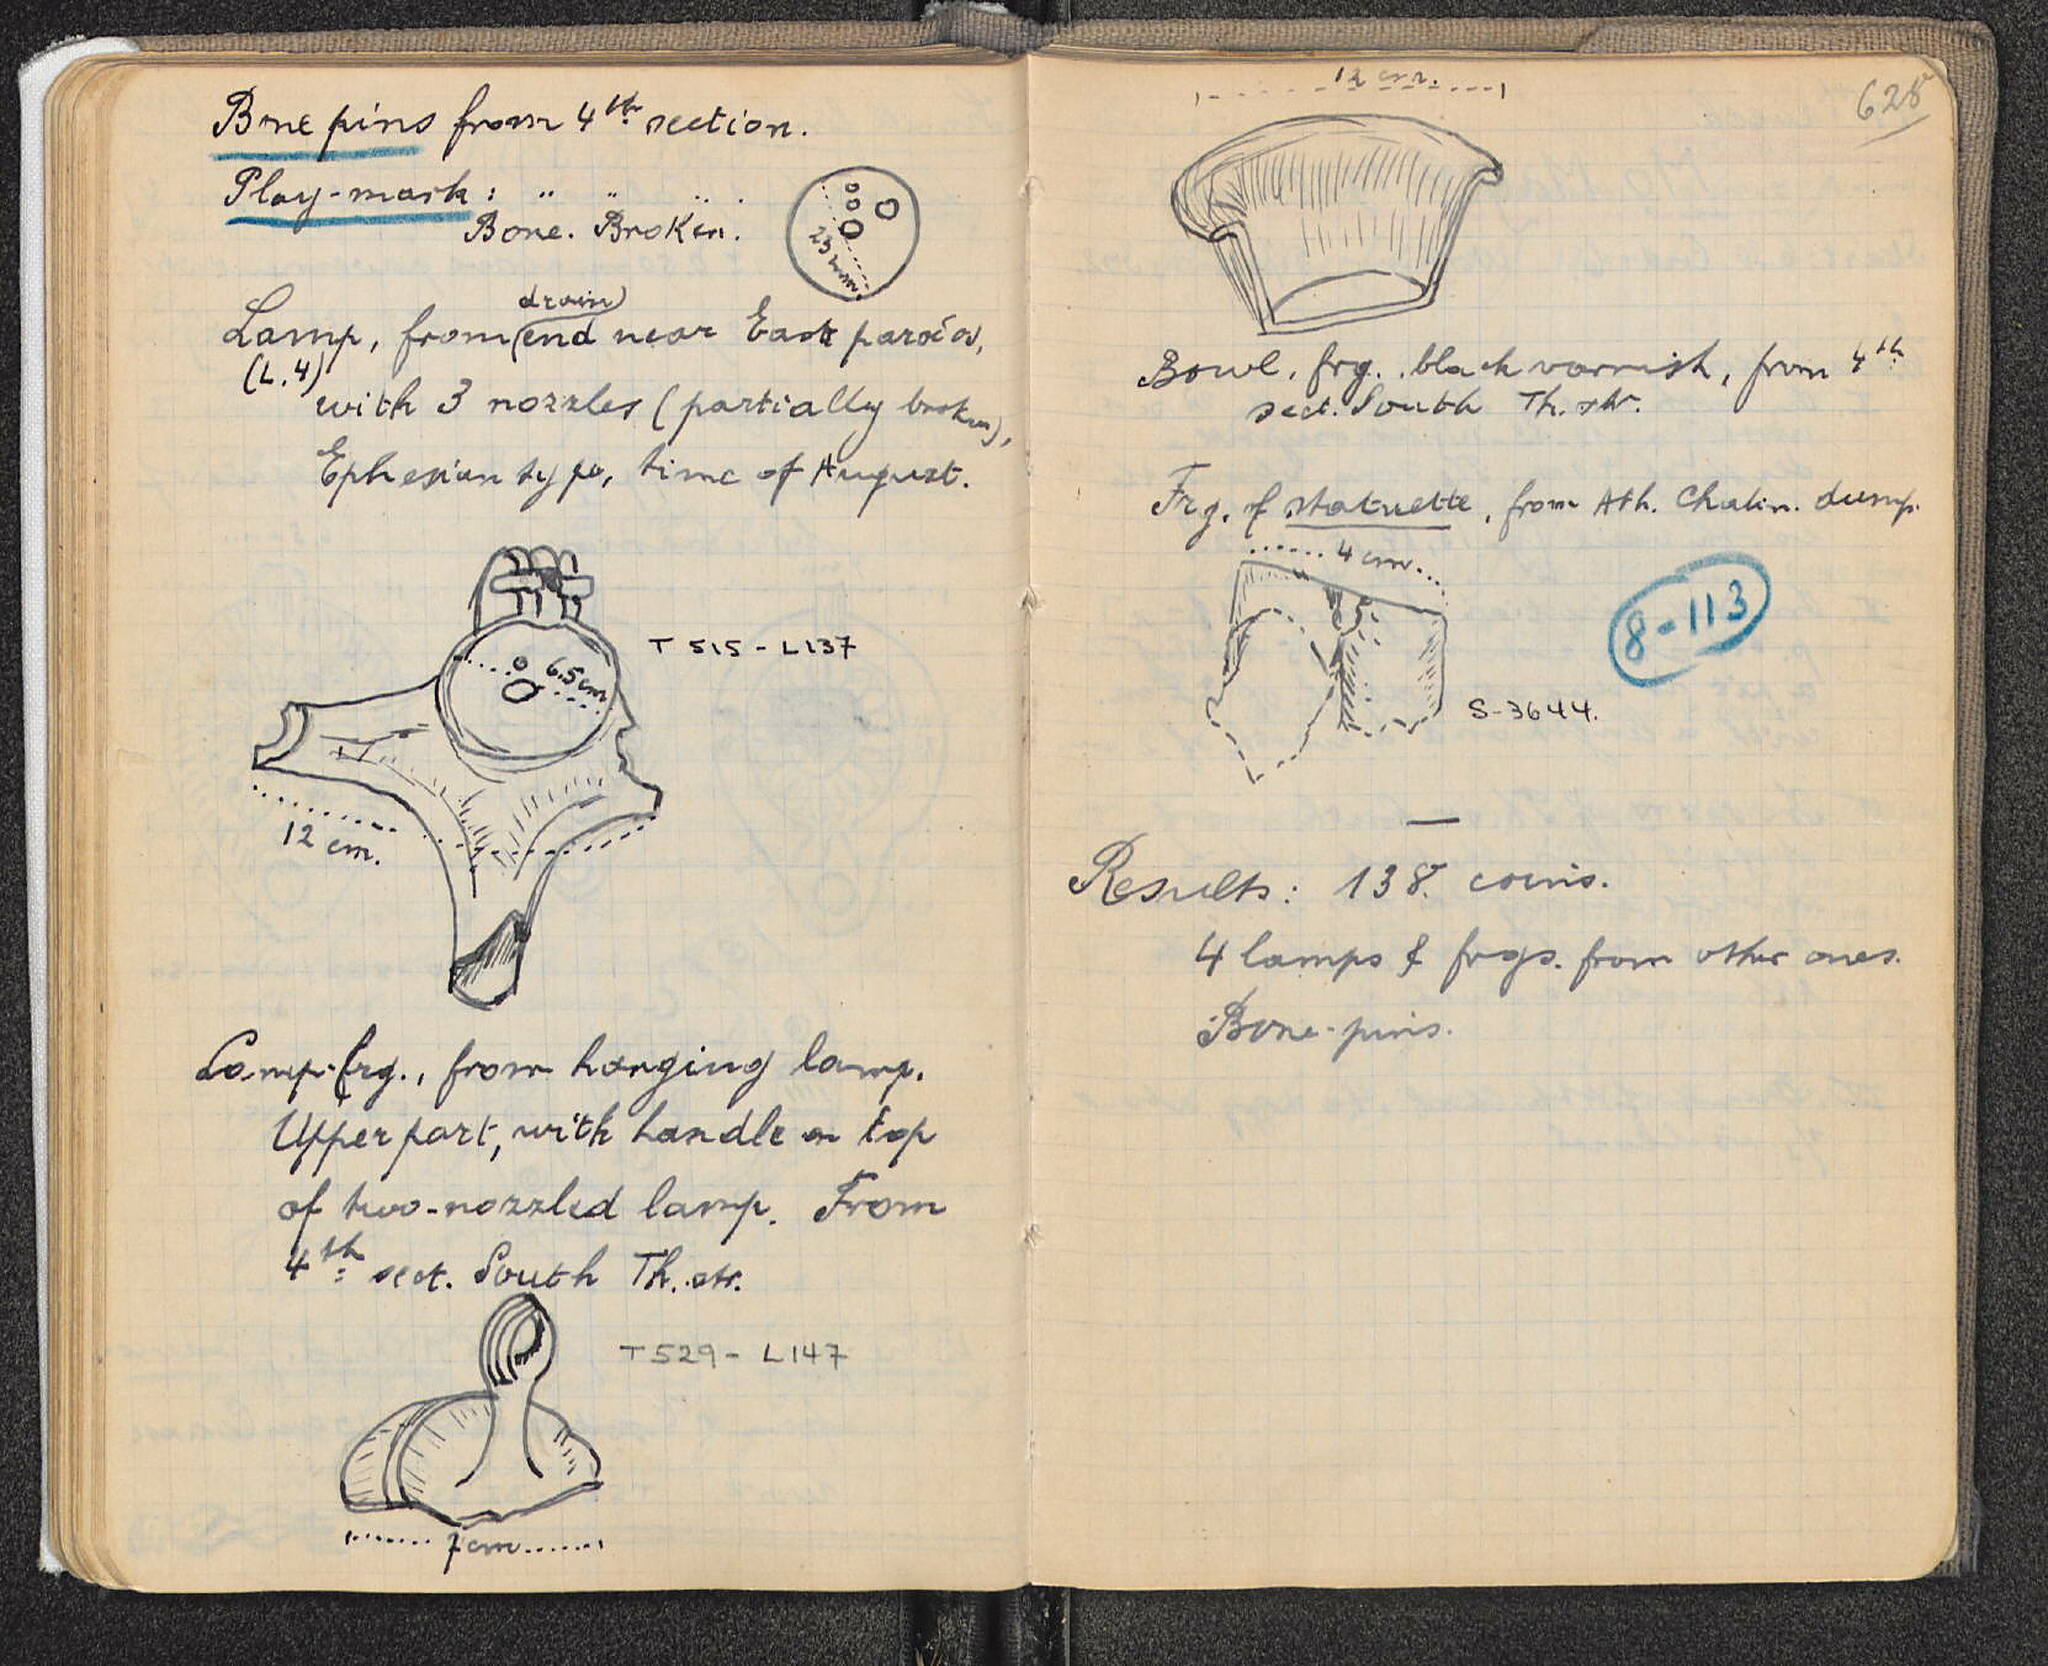 Bone pins from 4th section.
Play-mark: " " " .
Bone. Broken.
23 mm.
drain
Lamp, from end near East parodos,
(L.4)
with 3 nozzles (partially broken),
Ephesian type, time of August.
T 515 - L137
6.5 cm
12 cm.
Lamp-frg., from hanging lamp.
Upper part, with handle on top
of two-nozzled lamp. From
4th sect. South Th. str.
T 529 - L 147
7 cm
628
12 cm.
Bowl. frg. black varnish, from 4th
sect. South Th. str.
Frg. of statuette, from Ath. Chalin. dump.
4 cm.
8-113
S-3644.
Results: 138. coins.
4 lamps & frgs. from other ones.
Bone-pins.